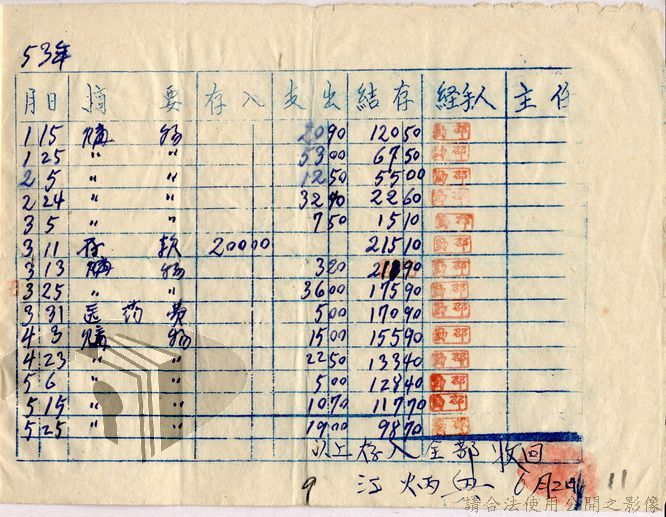 53年
月 日 摘 要 存 入 支 出 結 存 経手人 主 任
1 15 購 物 20 90 120 50
1 25 〃 〃 53 00 67 50
2 5 〃 〃 12 50 55 00
2 24 〃 〃 32 40 22 60
3 5 〃 〃 7 50 15 10
3 11 存 款 200 00 215 10
3 13 購 物 3 20 211 90
3 25 〃 〃 36 00 175 90
3 31 医 药 费 5 00 170 90
4 3 購 物 15 00 155 90
4 23 〃 〃 22 50 133 40
5 6 〃 〃 5 00 128 40
5 15 〃 〃 10 70 117 70
5 25 〃 〃 19 00 98 70
以上存入全部收回
9 江炳 6月24 11
請合法使用公開之影像